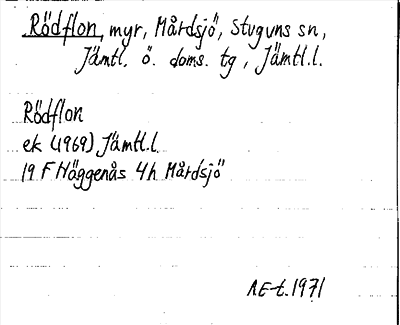 Rödflon, myr, Mårdsjö, Stuguns sn,
Jämtl. ö. doms. tg, Jämtl.l.
Rödflon
ek (1969) Jämtl.l.
19 F Häggenås 4h Mårdsjö
AE-t. 1971